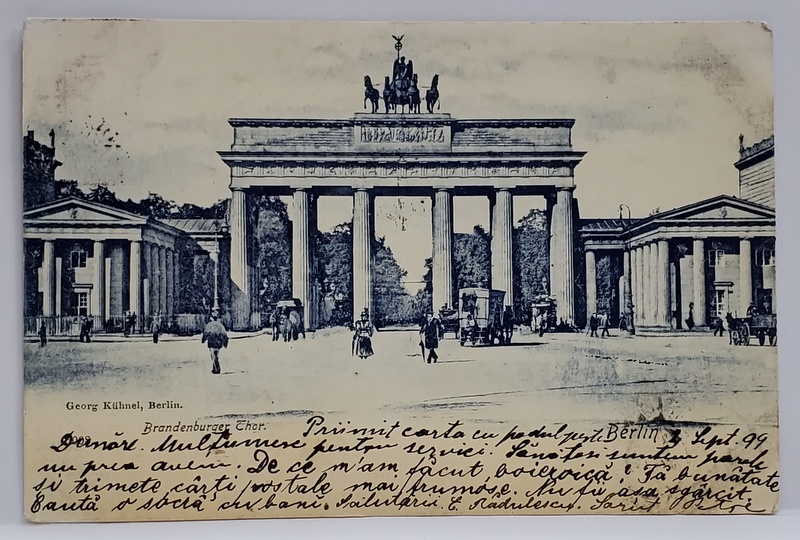 Georg Kühnel, Berlin.
Brandenburger Thor.
Berlin
Priimit carta cu podul peste
Sept. 99
Dunăre. Mulțumesc pentru servici. Sănătosi suntem parale
nu prea avem. De ce m'am făcut boieroică? Fă bunătate
si trimete cărți postale mai frumose. Nu fii asa sgârcit.
Caută o socră cu bani. Salutări. E. Rădulescu.